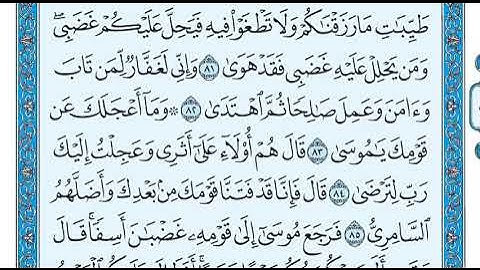 طَيِّبَٰتِ مَا رَزَقْنَٰكُمْ وَلَا تَطْغَوْا۟ فِيهِ فَيَحِلَّ عَلَيْكُمْ غَضَبِى ۖ
وَمَن يَحْلِلْ عَلَيْهِ غَضَبِى فَقَدْ هَوَىٰ ٨١ وَإِنِّى لَغَفَّارٌ لِّمَن تَابَ
وَءَامَنَ وَعَمِلَ صَٰلِحًا ثُمَّ ٱهْتَدَىٰ ٨٢ ۞ وَمَآ أَعْجَلَكَ عَن
قَوْمِكَ يَٰمُوسَىٰ ٨٣ قَالَ هُمْ أُو۟لَآءِ عَلَىٰٓ أَثَرِى وَعَجِلْتُ إِلَيْكَ
رَبِّ لِتَرْضَىٰ ٨٤ قَالَ فَإِنَّا قَدْ فَتَنَّا قَوْمَكَ مِنۢ بَعْدِكَ وَأَضَلَّهُمُ
ٱلسَّامِرِىُّ ٨٥ فَرَجَعَ مُوسَىٰٓ إِلَىٰ قَوْمِهِۦ غَضْبَٰنَ أَسِفًا ۚ قَالَ